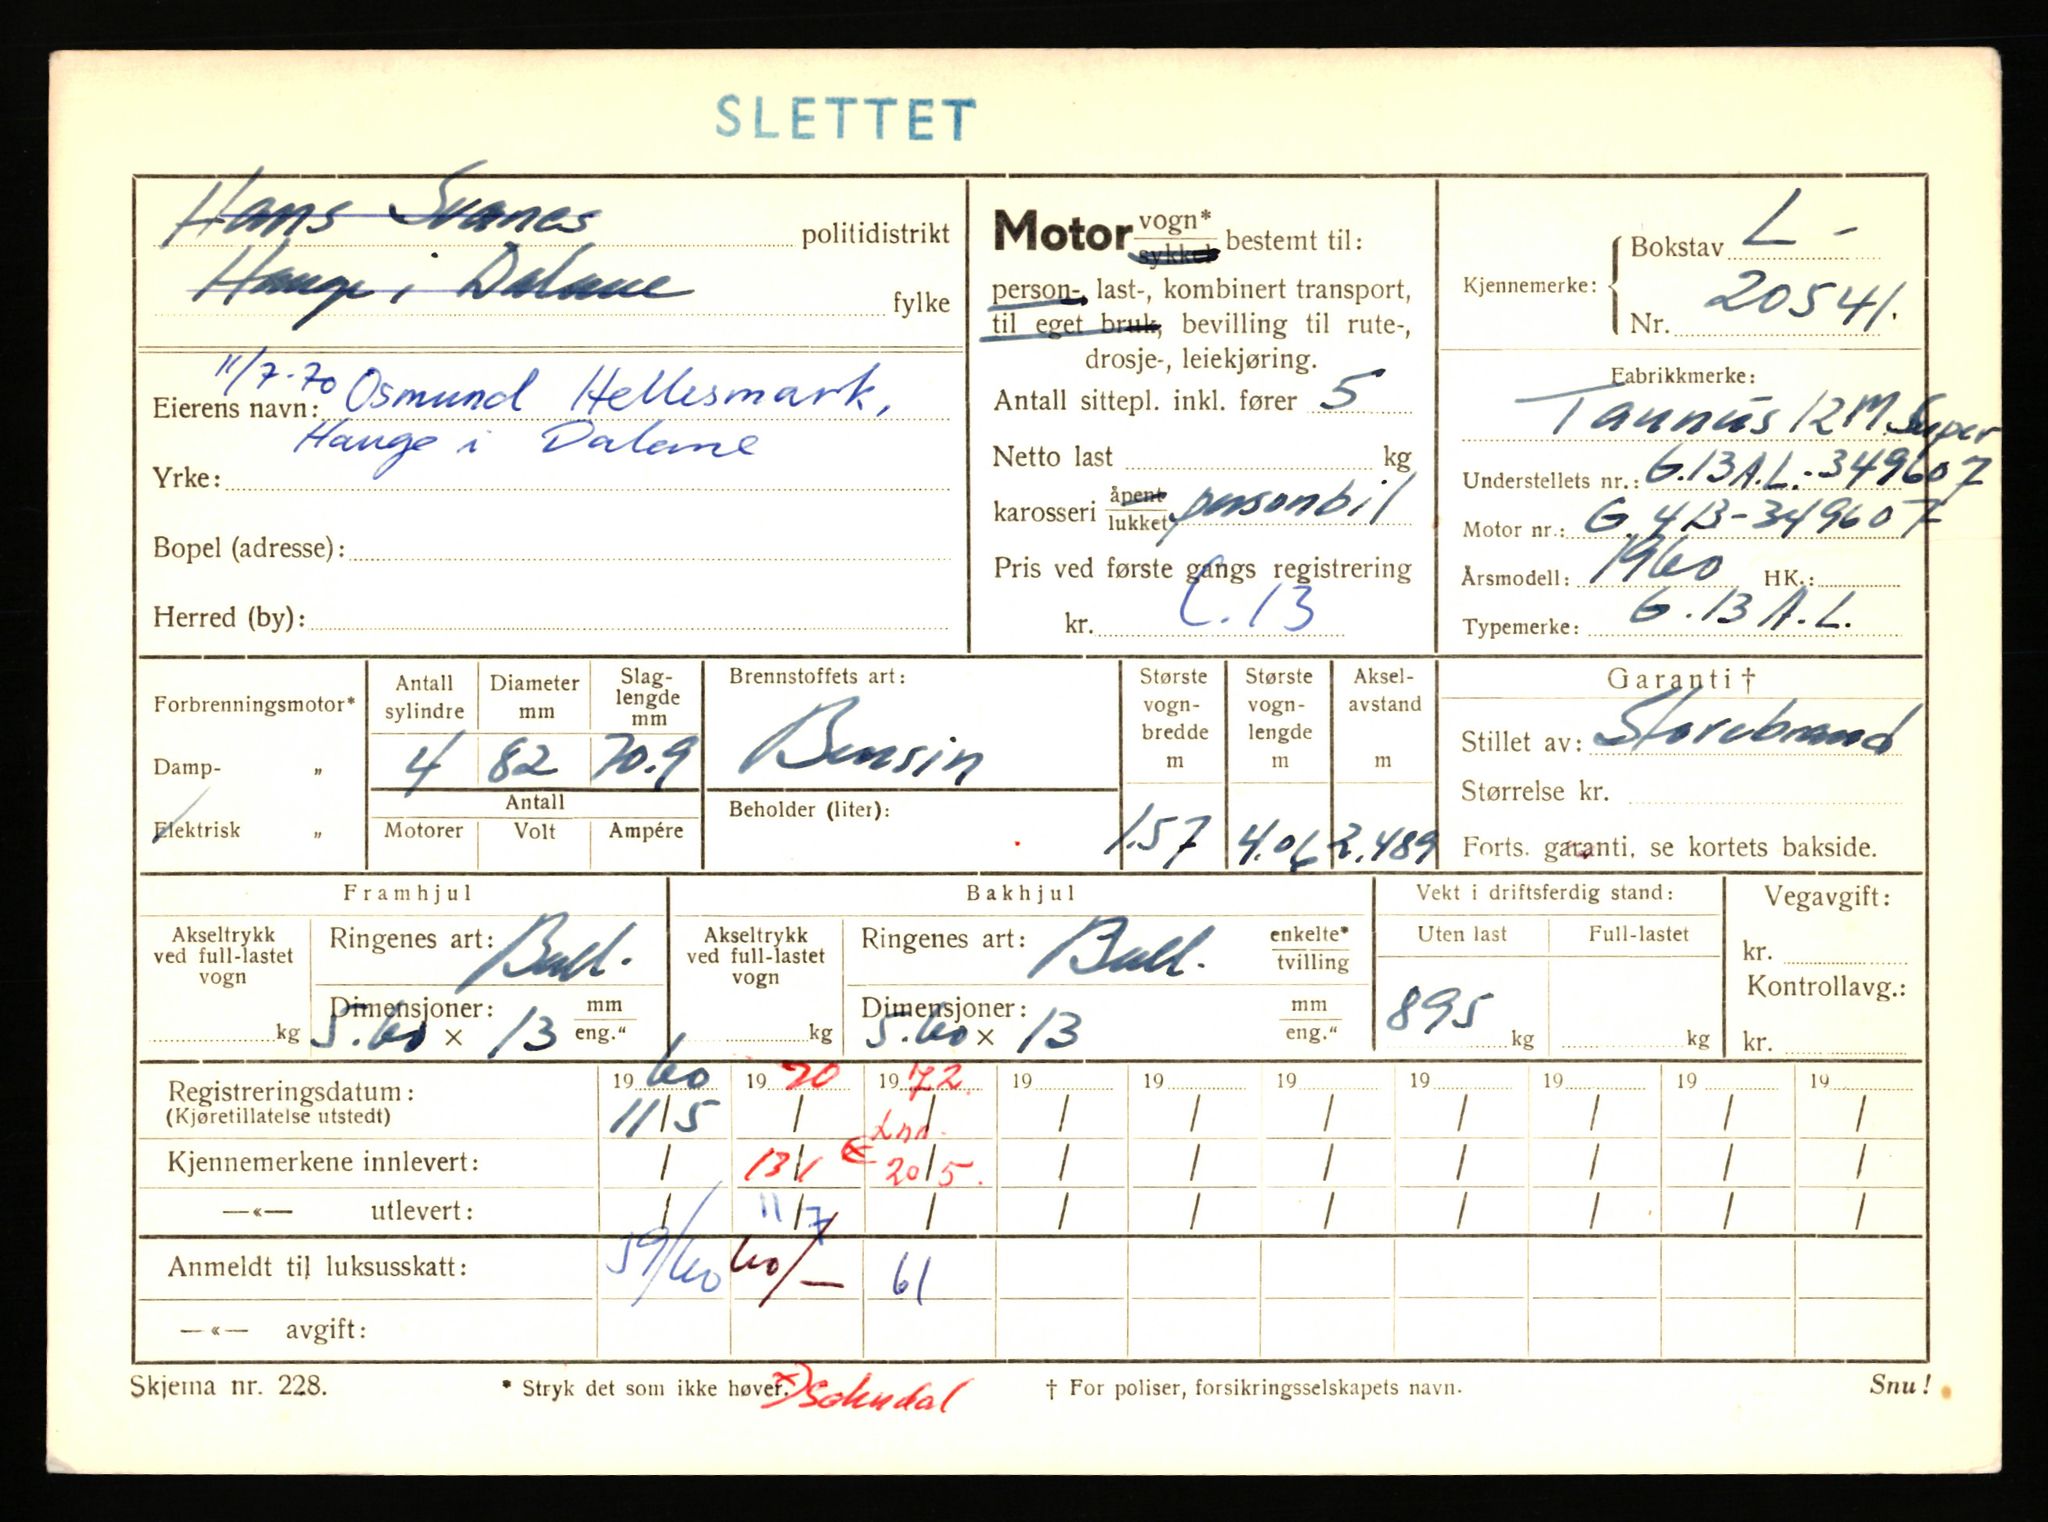 SLETTET
Hans Svanes politidistrikt
Hauge i Dalane fylke
11/7-70 Osmund Hellesmark,
Eierens navn:
Hauge i Dalane
Yrke:
Bopel (adresse):
Herred (by):
Motor vogn* / sykkel bestemt til:
person-, last-, kombinert transport,
til eget bruk, bevilling til rute-,
drosje-, leiekjøring.
Antall sittepl. inkl. fører 5
Netto last kg
karosseri åpent / lukket personbil
Pris ved første gangs registrering
kr. C.13
Kjennemerke: Bokstav L -
Nr. 20541.
Fabrikkmerke:
Taunus 12 M. Super
Understellets nr.: G.13A.L.-349607
Motor nr.: G.413-349607
Årsmodell: 1960 HK.:
Typemerke: G.13A.L.
Forbrenningsmotor*
Damp- „
Elektrisk „
Antall sylindre 4
Diameter mm 82
Slag-lengde mm 70.9
Antall
Motorer Volt Ampére
Brennstoffets art:
Bensin
Beholder (liter):
Største vogn-bredde m 1.57
Største vogn-lengde m 4.06
Aksel-avstand m 2.489
Garanti †
Stillet av: Storebrand
Størrelse kr.
Forts. garanti, se kortets bakside.
Framhjul
Akseltrykk ved full-lastet vogn kg
Ringenes art: Ball.
Dimensjoner: mm / eng."
5.60 x 13
Bakhjul
Akseltrykk ved full-lastet vogn kg
Ringenes art: Ball. enkelte* / tvilling
Dimensjoner: mm / eng."
5.60 x 13
Vekt i driftsferdig stand:
Uten last Full-lastet
895 kg kg
Vegavgift:
kr.
Kontrollavg.:
kr.
Registreringsdatum: 19 60 19 70 19 72 19 19 19 19 19 19 19
(Kjøretillatelse utstedt) 11/5 / / / / / / / / /
Kjennemerkene innlevert: / 13/1 x 20/5. / / / / / / /
—«— utlevert: / 11/7 / / / / / / / /
Anmeldt til luksusskatt: 59/60 60/— 61
—«— avgift:
Skjema nr. 228.
* Stryk det som ikke høver.
x) Sokndal
† For poliser, forsikringsselskapets navn.
Snu!